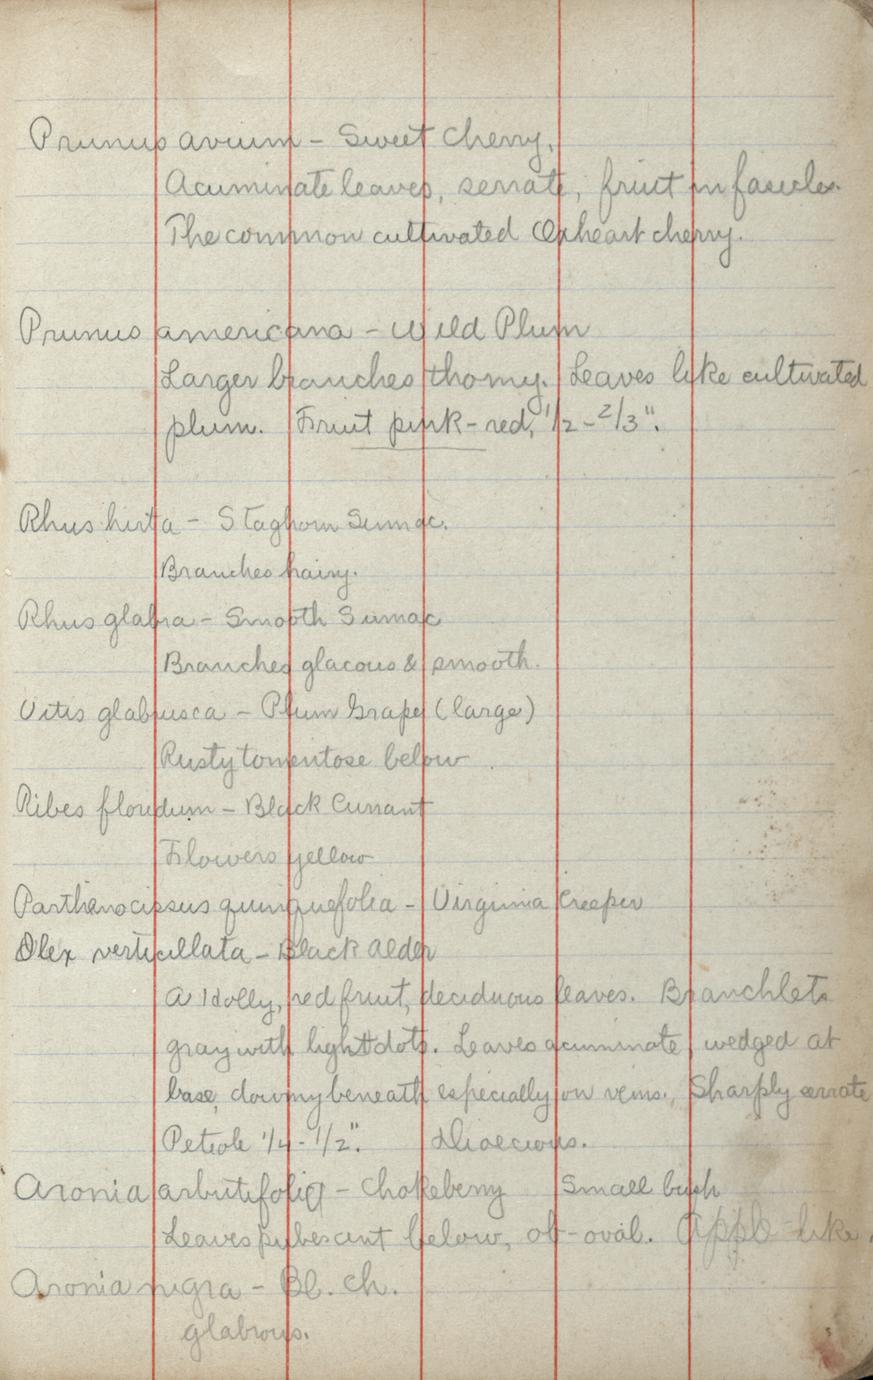 Prunus avium - Sweet Cherry.
Acuminate leaves, serrate, fruit in fascicles.
The common cultivated Oxheart cherry.
Prunus americana - Wild Plum
Larger branches thorny. Leaves like cultivated
plum. Fruit pink-red, 1/2 - 2/3".
Rhus hirta - Staghorn Sumac.
Branches hairy.
Rhus glabra - Smooth Sumac
Branches glacous & smooth.
Vitis glabrusca - Plum Grape (large)
Rusty tomentose below.
Ribes floridum - Black Currant
Flowers yellow
Parthenocissus quinquefolia - Virginia Creeper
Ilex verticillata - Black Alder
A Holly, red fruit, deciduous leaves. Branchlets
gray with light dots. Leaves acuminate, wedged at
base, downy beneath especially on veins. Sharply serrate
Petiole 1/4 - 1/2". Dioecious.
Aronia arbutifolia - Chokeberry Small bush
Leaves pubescent below, ob-oval. Apple-like.
Aronia nigra - Bl. Ch.
glabrous.